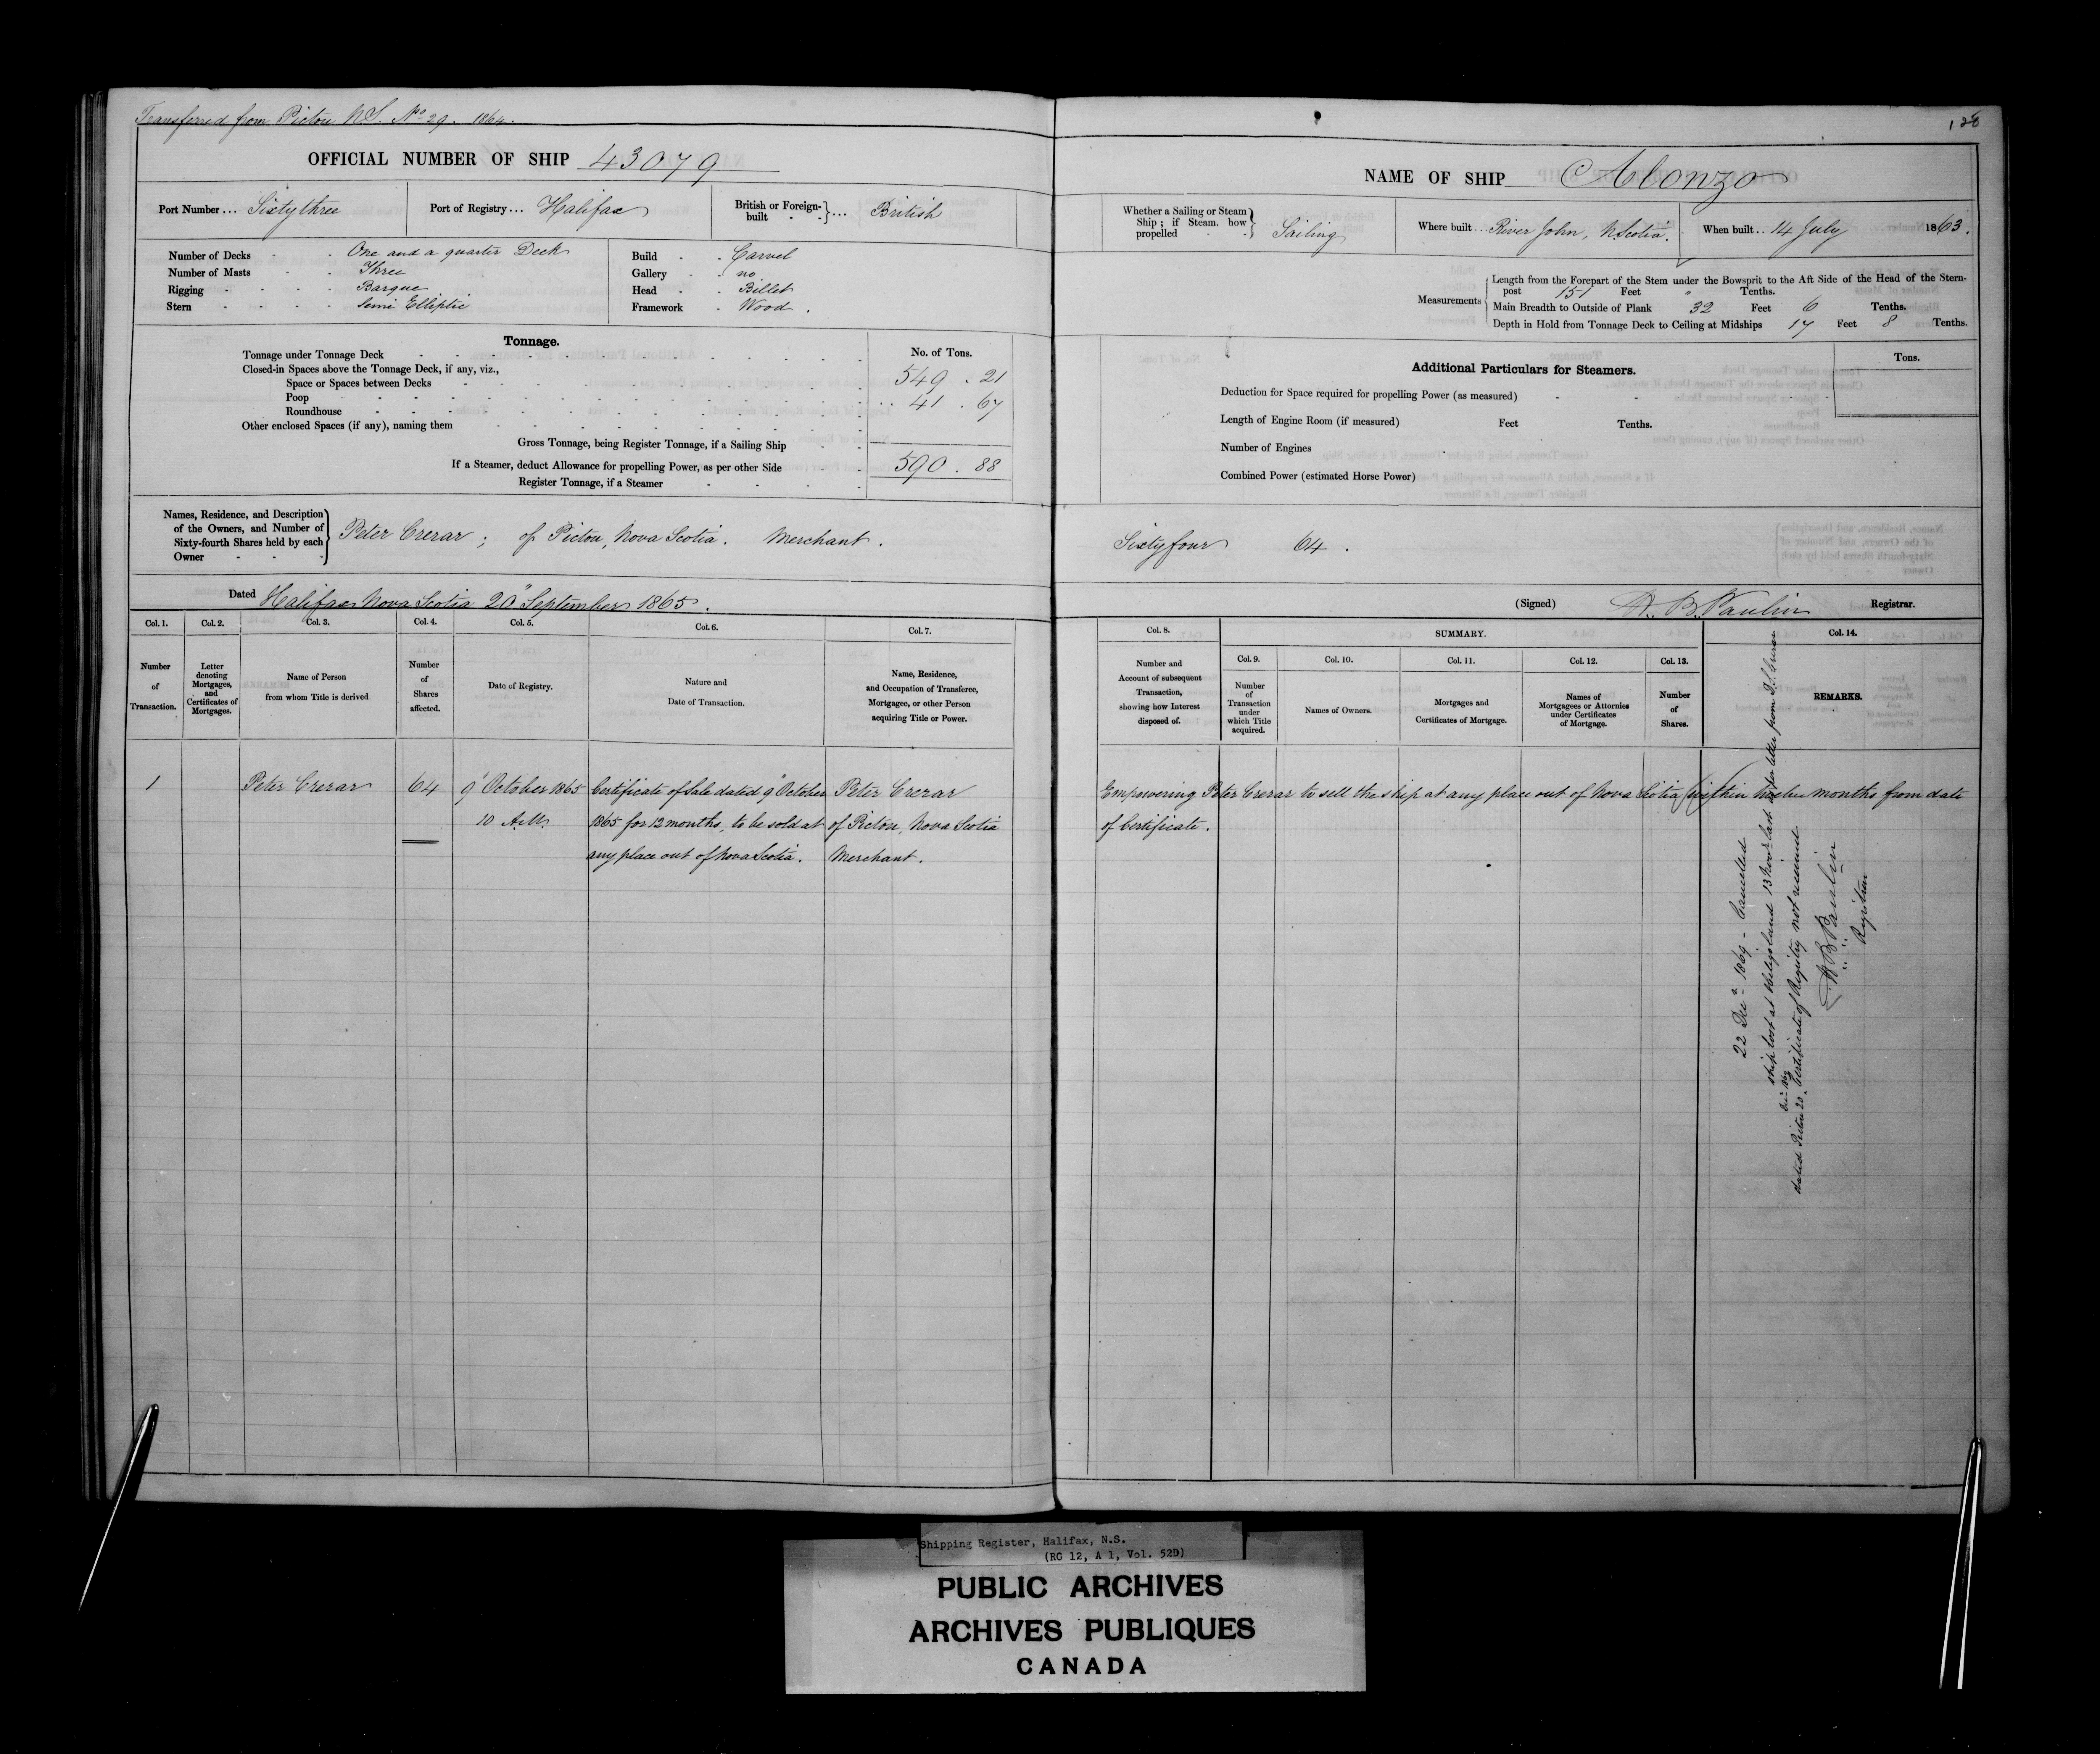 Transferred from Pictou N.S. No 29. 1864.
OFFICIAL NUMBER OF SHIP 43079
Port Number ... Sixty three
Port of Registry ... Halifax
British or Foreign-built ... British
Number of Decks One and a quarter Deck
Number of Masts Three
Rigging Barque
Stern Semi Elliptic
Build Carvel
Gallery no
Head Billet
Framework Wood.
Tonnage.
No. of Tons.
Tonnage under Tonnage Deck
Closed-in Spaces above the Tonnage Deck, if any, viz.,
Space or Spaces between Decks 549 . 21
Poop 41 . 67
Roundhouse
Other enclosed Spaces (if any), naming them
Gross Tonnage, being Register Tonnage, if a Sailing Ship
If a Steamer, deduct Allowance for propelling Power, as per other Side 590 . 88
Register Tonnage, if a Steamer
Names, Residence, and Description
of the Owners, and Number of
Sixty-fourth Shares held by each
Owner
Peter Crerar ; of Pictou, Nova Scotia. Merchant.
Dated Halifax Nova Scotia 20" September 1865.
Col. 1. Col. 2. Col. 3. Col. 4. Col. 5. Col. 6. Col. 7.
Number of Transaction.
Letter denoting Mortgages, and Certificates of Mortgages.
Name of Person from whom Title is derived
Number of Shares affected.
Date of Registry.
Nature and Date of Transaction.
Name, Residence, and Occupation of Transferee, Mortgagee, or other Person acquiring Title or Power.
1 Peter Crerar 64 9" October 1865 Certificate of Sale dated 9" October Peter Crerar
10 A.M. 1865 for 12 months, to be sold at of Pictou, Nova Scotia
any place out of Nova Scotia. Merchant.
128
NAME OF SHIP Alonzo
Whether a Sailing or Steam Ship; if Steam. how propelled Sailing
Where built ... River John, N Scotia.
When built .. 14 July 1863.
Measurements
Length from the Forepart of the Stem under the Bowsprit to the Aft Side of the Head of the Stern-
post 151 Feet " Tenths.
Main Breadth to Outside of Plank 32 Feet 6 Tenths.
Depth in Hold from Tonnage Deck to Ceiling at Midships 17 Feet 8 Tenths.
Additional Particulars for Steamers.
Tons.
Deduction for Space required for propelling Power (as measured)
Length of Engine Room (if measured) Feet Tenths.
Number of Engines
Combined Power (estimated Horse Power)
Sixty four 64.
(Signed) H. B. Paulin Registrar.
Col. 8. SUMMARY. Col. 14.
Col. 9. Col. 10. Col. 11. Col. 12. Col. 13.
Number and Account of subsequent Transaction, showing how Interest disposed of.
Number of Transaction under which Title acquired.
Names of Owners.
Mortgages and Certificates of Mortgage.
Names of Mortgagees or Attornies under Certificates of Mortgage.
Number of Shares.
REMARKS.
Empowering Peter Crerar to sell the ship at any place out of Nova Scotia within twelve months from date
of Certificate.
22 Decr 1869 - Cancelled
ship lost at Heligoland 13 Novr last as per letter from
dated Pictou 20 Certificate of Registry not received
H B Paulin
Registrar
Shipping Register, Halifax, N.S.
(RG 12, A 1, Vol. 52D)
PUBLIC ARCHIVES
ARCHIVES PUBLIQUES
CANADA